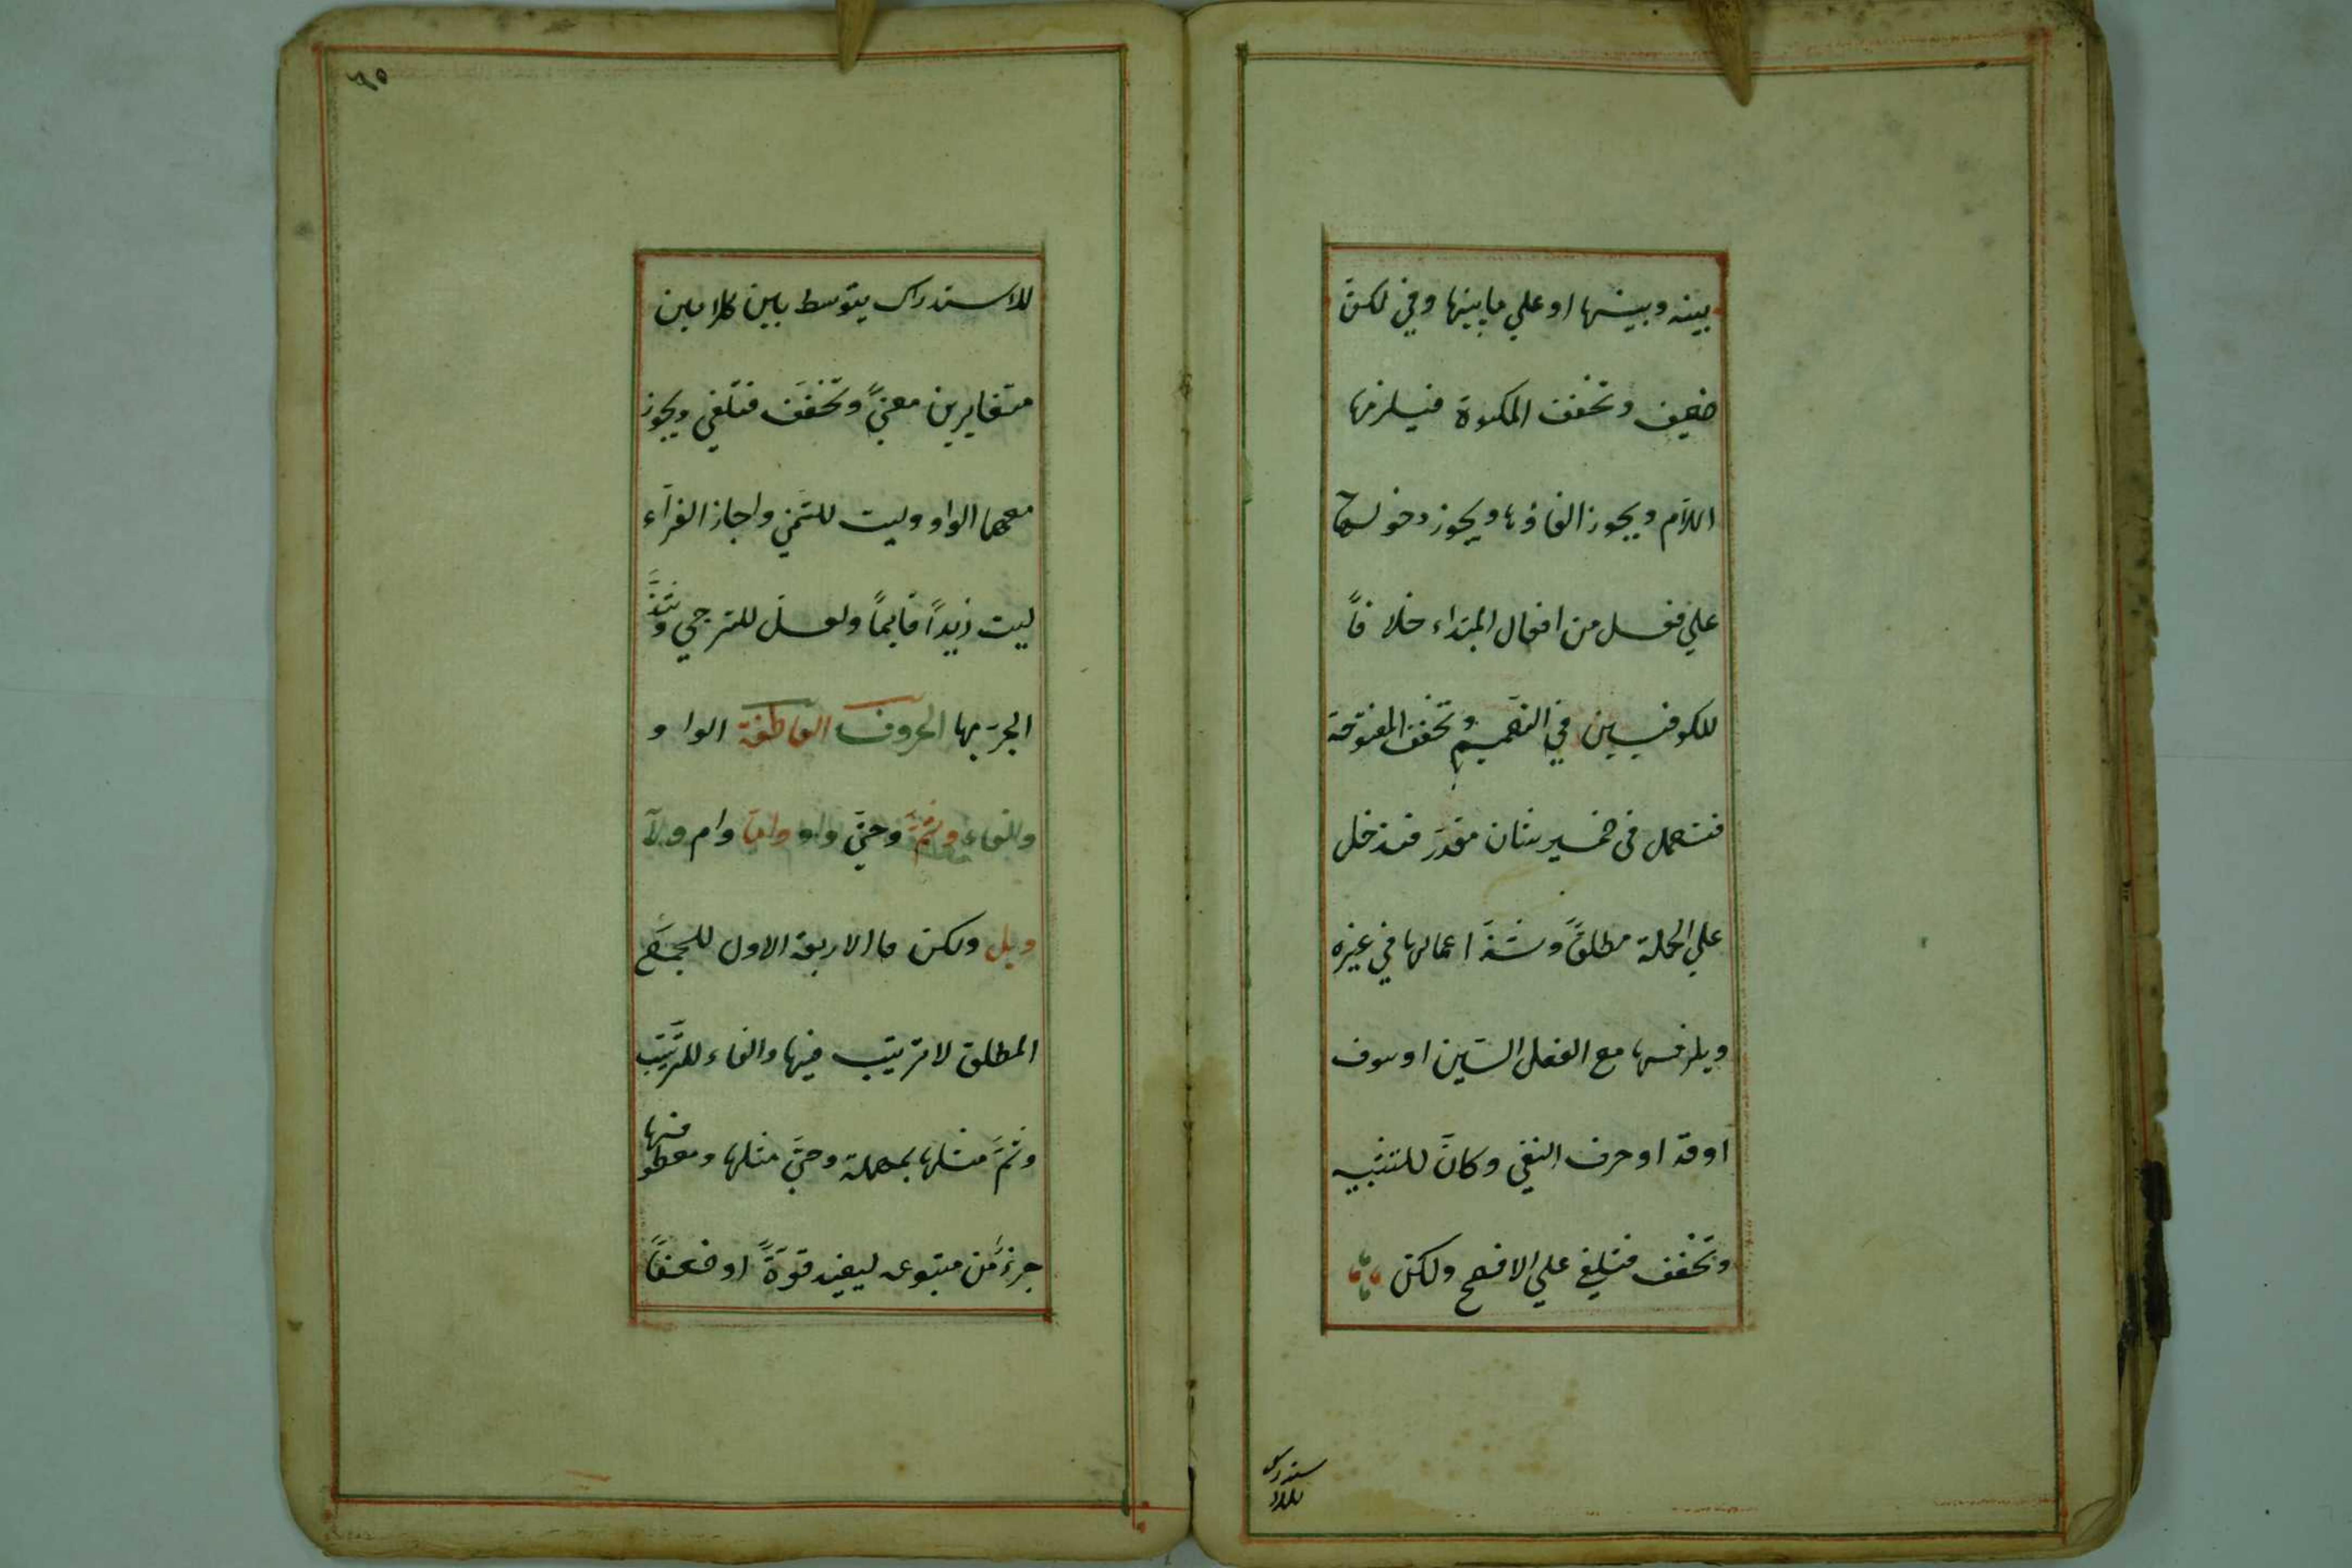 بينه وبينها او علي ما بينها وفي لكنّ
ضعيف وتخفف المكسورة فيلزمها
اللّام ويجوز الغاؤها ويجوز دخولها
علي فعل من افعال المبتداء خلافاً
للكوفيين في التعميم وتخفف المفتوحة
فتعمل في ضمير شان مقدّر فتدخل
علي الجملة مطلقاً وشذّ اعمالها في غيره
ويلزمها مع الفعل السّين او سوف
او قد او حرف النفي وكانّ للتشبيه
وتخفف فتلغي علي الافصح ولكنّ
للاستدراك
٦٥
للاستدراك يتوسط بين كلامين
متغايرين معنيً وتخفّف فتلغي ويجوز
معها الواو وليت للتمنّي واجاز الفرّاء
ليت زيداً قايماً ولعل للترجي وشذّ
الجرّ بها الحروف العاطفة الواو
والفاء وثمّ وحتّي واو وامّا وام ولا
وبل ولكن فالاربعة الاول للجمع
المطلق لا ترتيب فيها والفاء للترتيب
وثمّ مثلها بمهلة وحتّي مثلها ومعطوفها
جزءٌ من متبوعه ليفيد قوّةً او ضعفاً